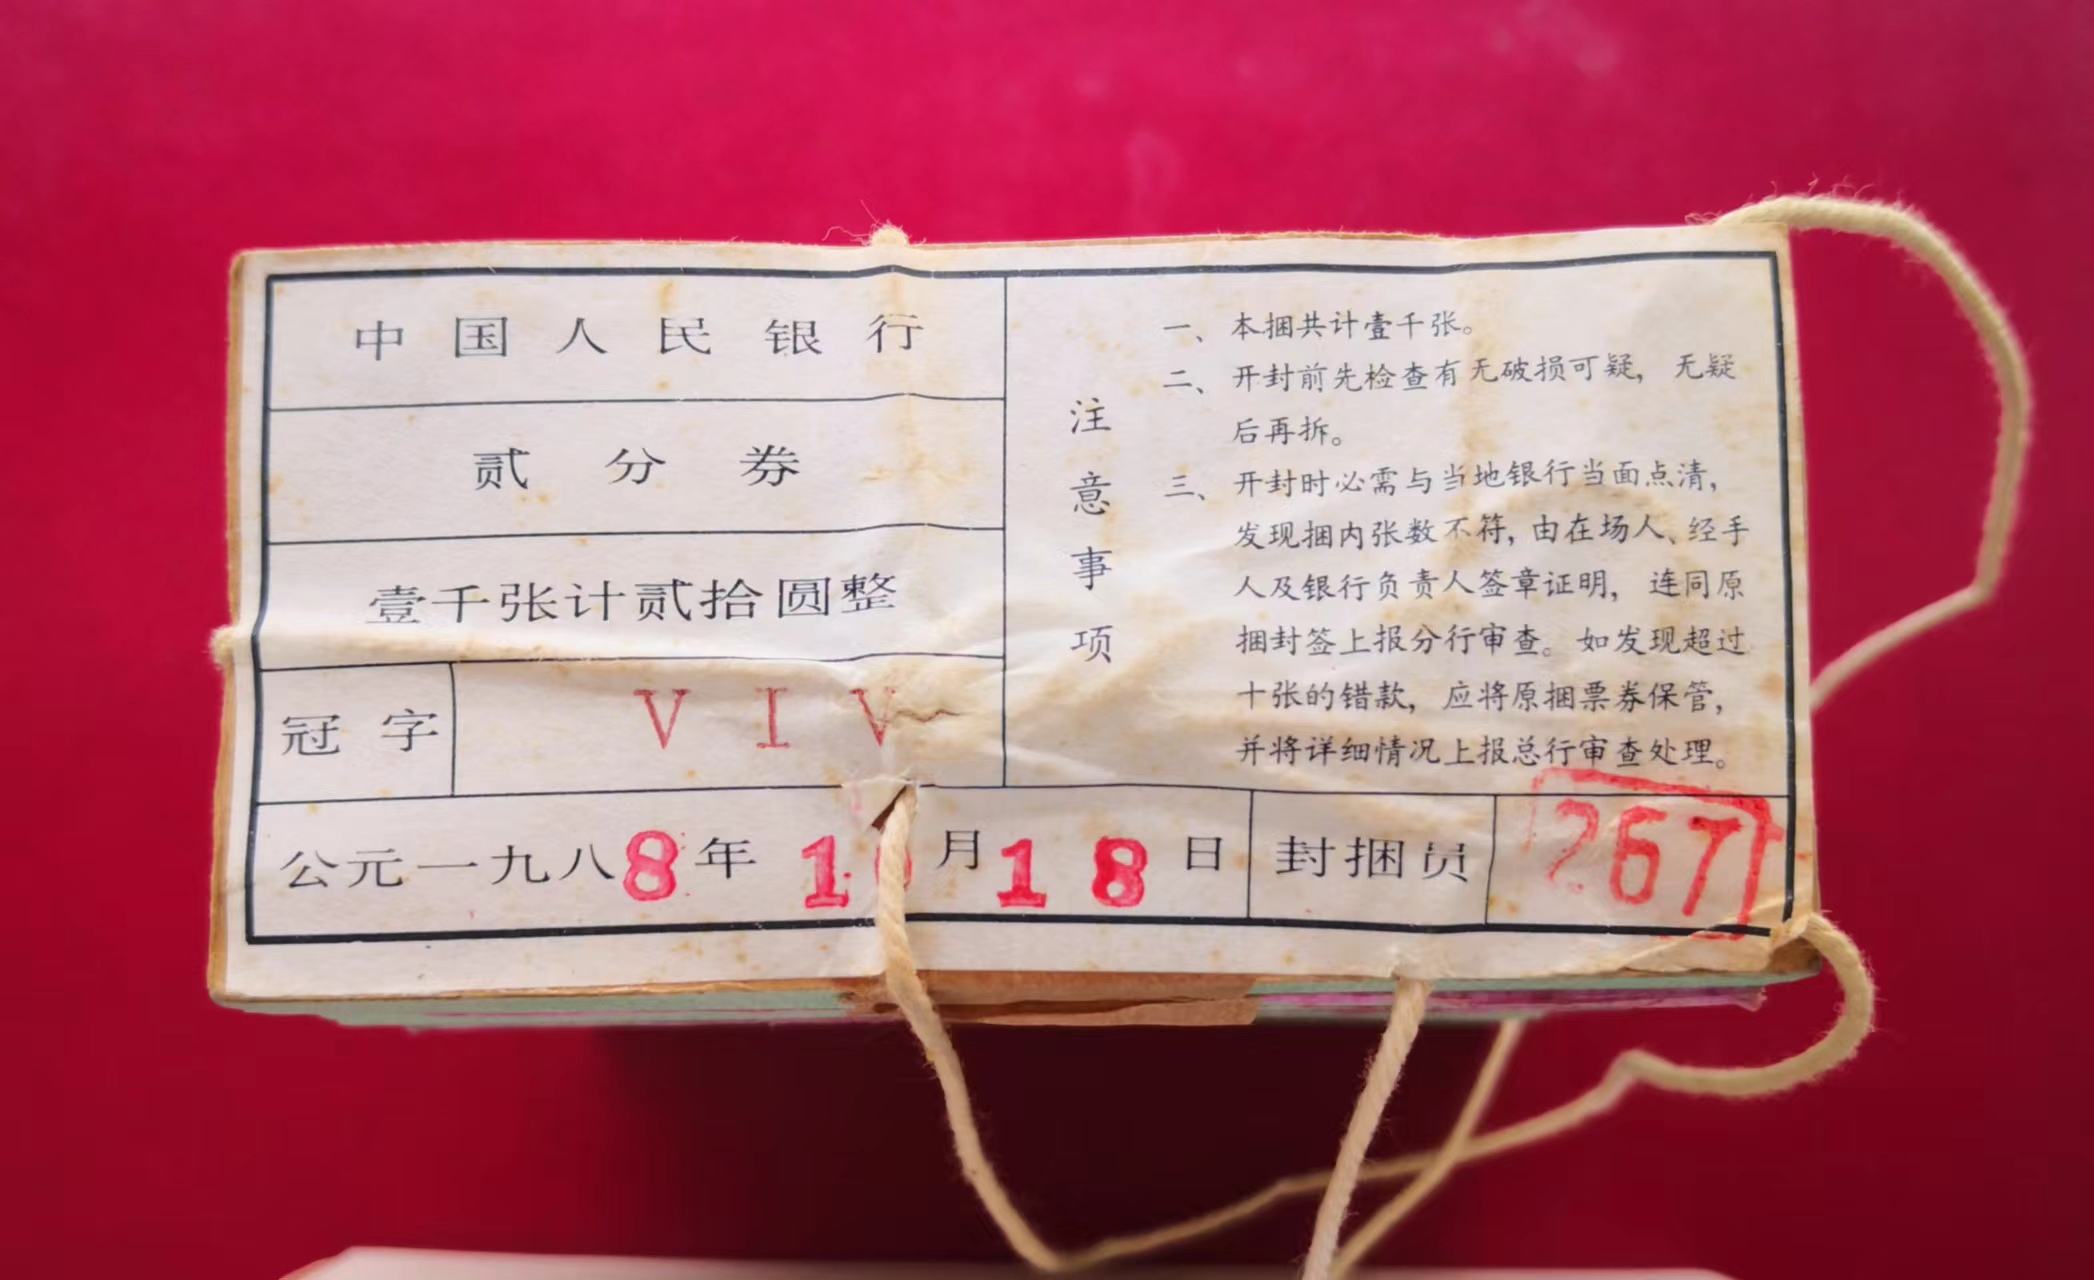 中国人民银行
贰分券
壹千张计贰拾圆整
冠字 V I V
注意事项
一、本捆共计壹千张。
二、开封前先检查有无破损可疑，无疑
后再拆。
三、开封时必需与当地银行当面点清，
发现捆内张数不符，由在场人、经手
人及银行负责人签章证明，连同原
捆封签上报分行审查。如发现超过
十张的错款，应将原捆票券保管，
并将详细情况上报总行审查处理。
公元一九八8年 10月18日 封捆员 267